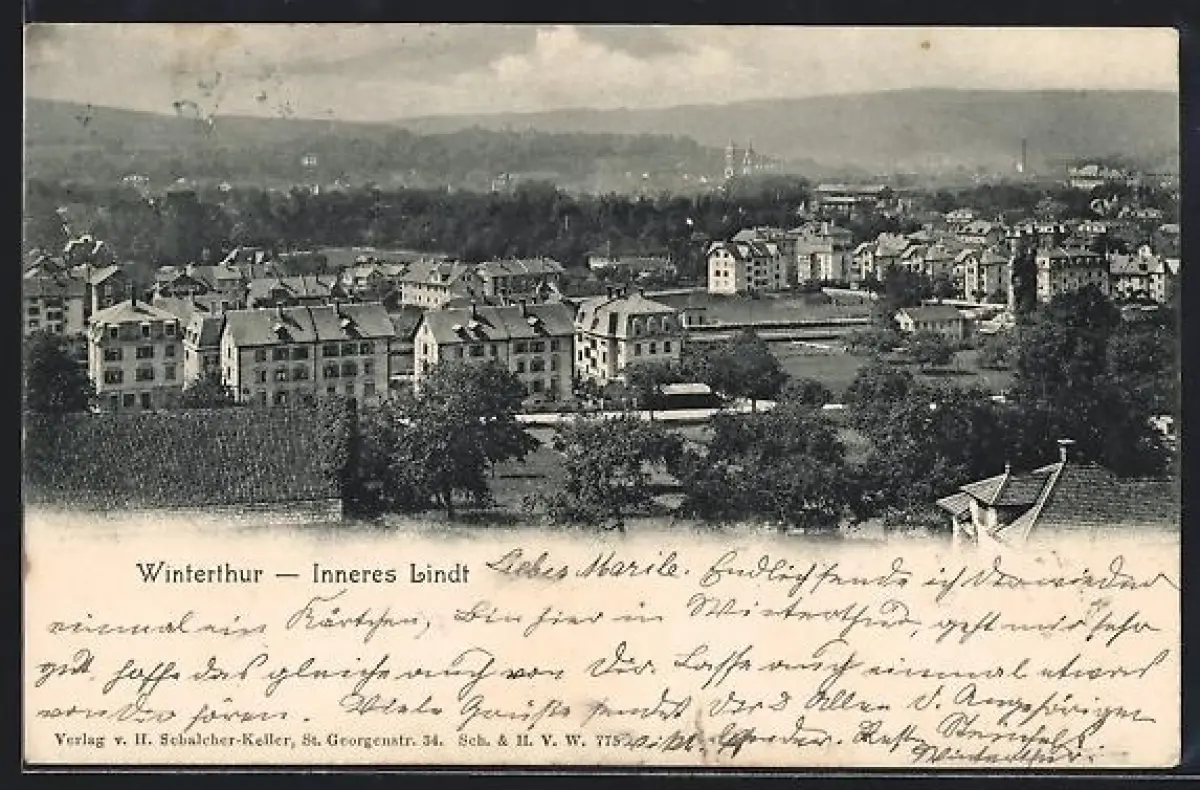 Winterthur — Inneres Lindt
Liebes Marile. Endlich sende ich Dir wieder
einmal ein Kärtchen, bin hier in Winterthur, geht mir sehr
gut, hoffe das gleiche auch von Dir. Lasse auch einmal etwas
von Dir hören. Viele Grüße sendet Dir d. Angehörigen
Verlag v. H. Schalcher-Keller, St. Georgenstr. 34. Sch. & H. V. W. 775
Winterthur.